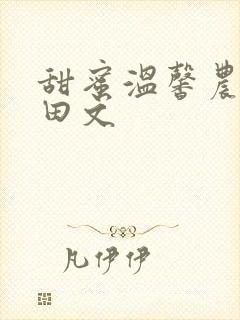 甜蜜温馨農
田文
凡伊伊